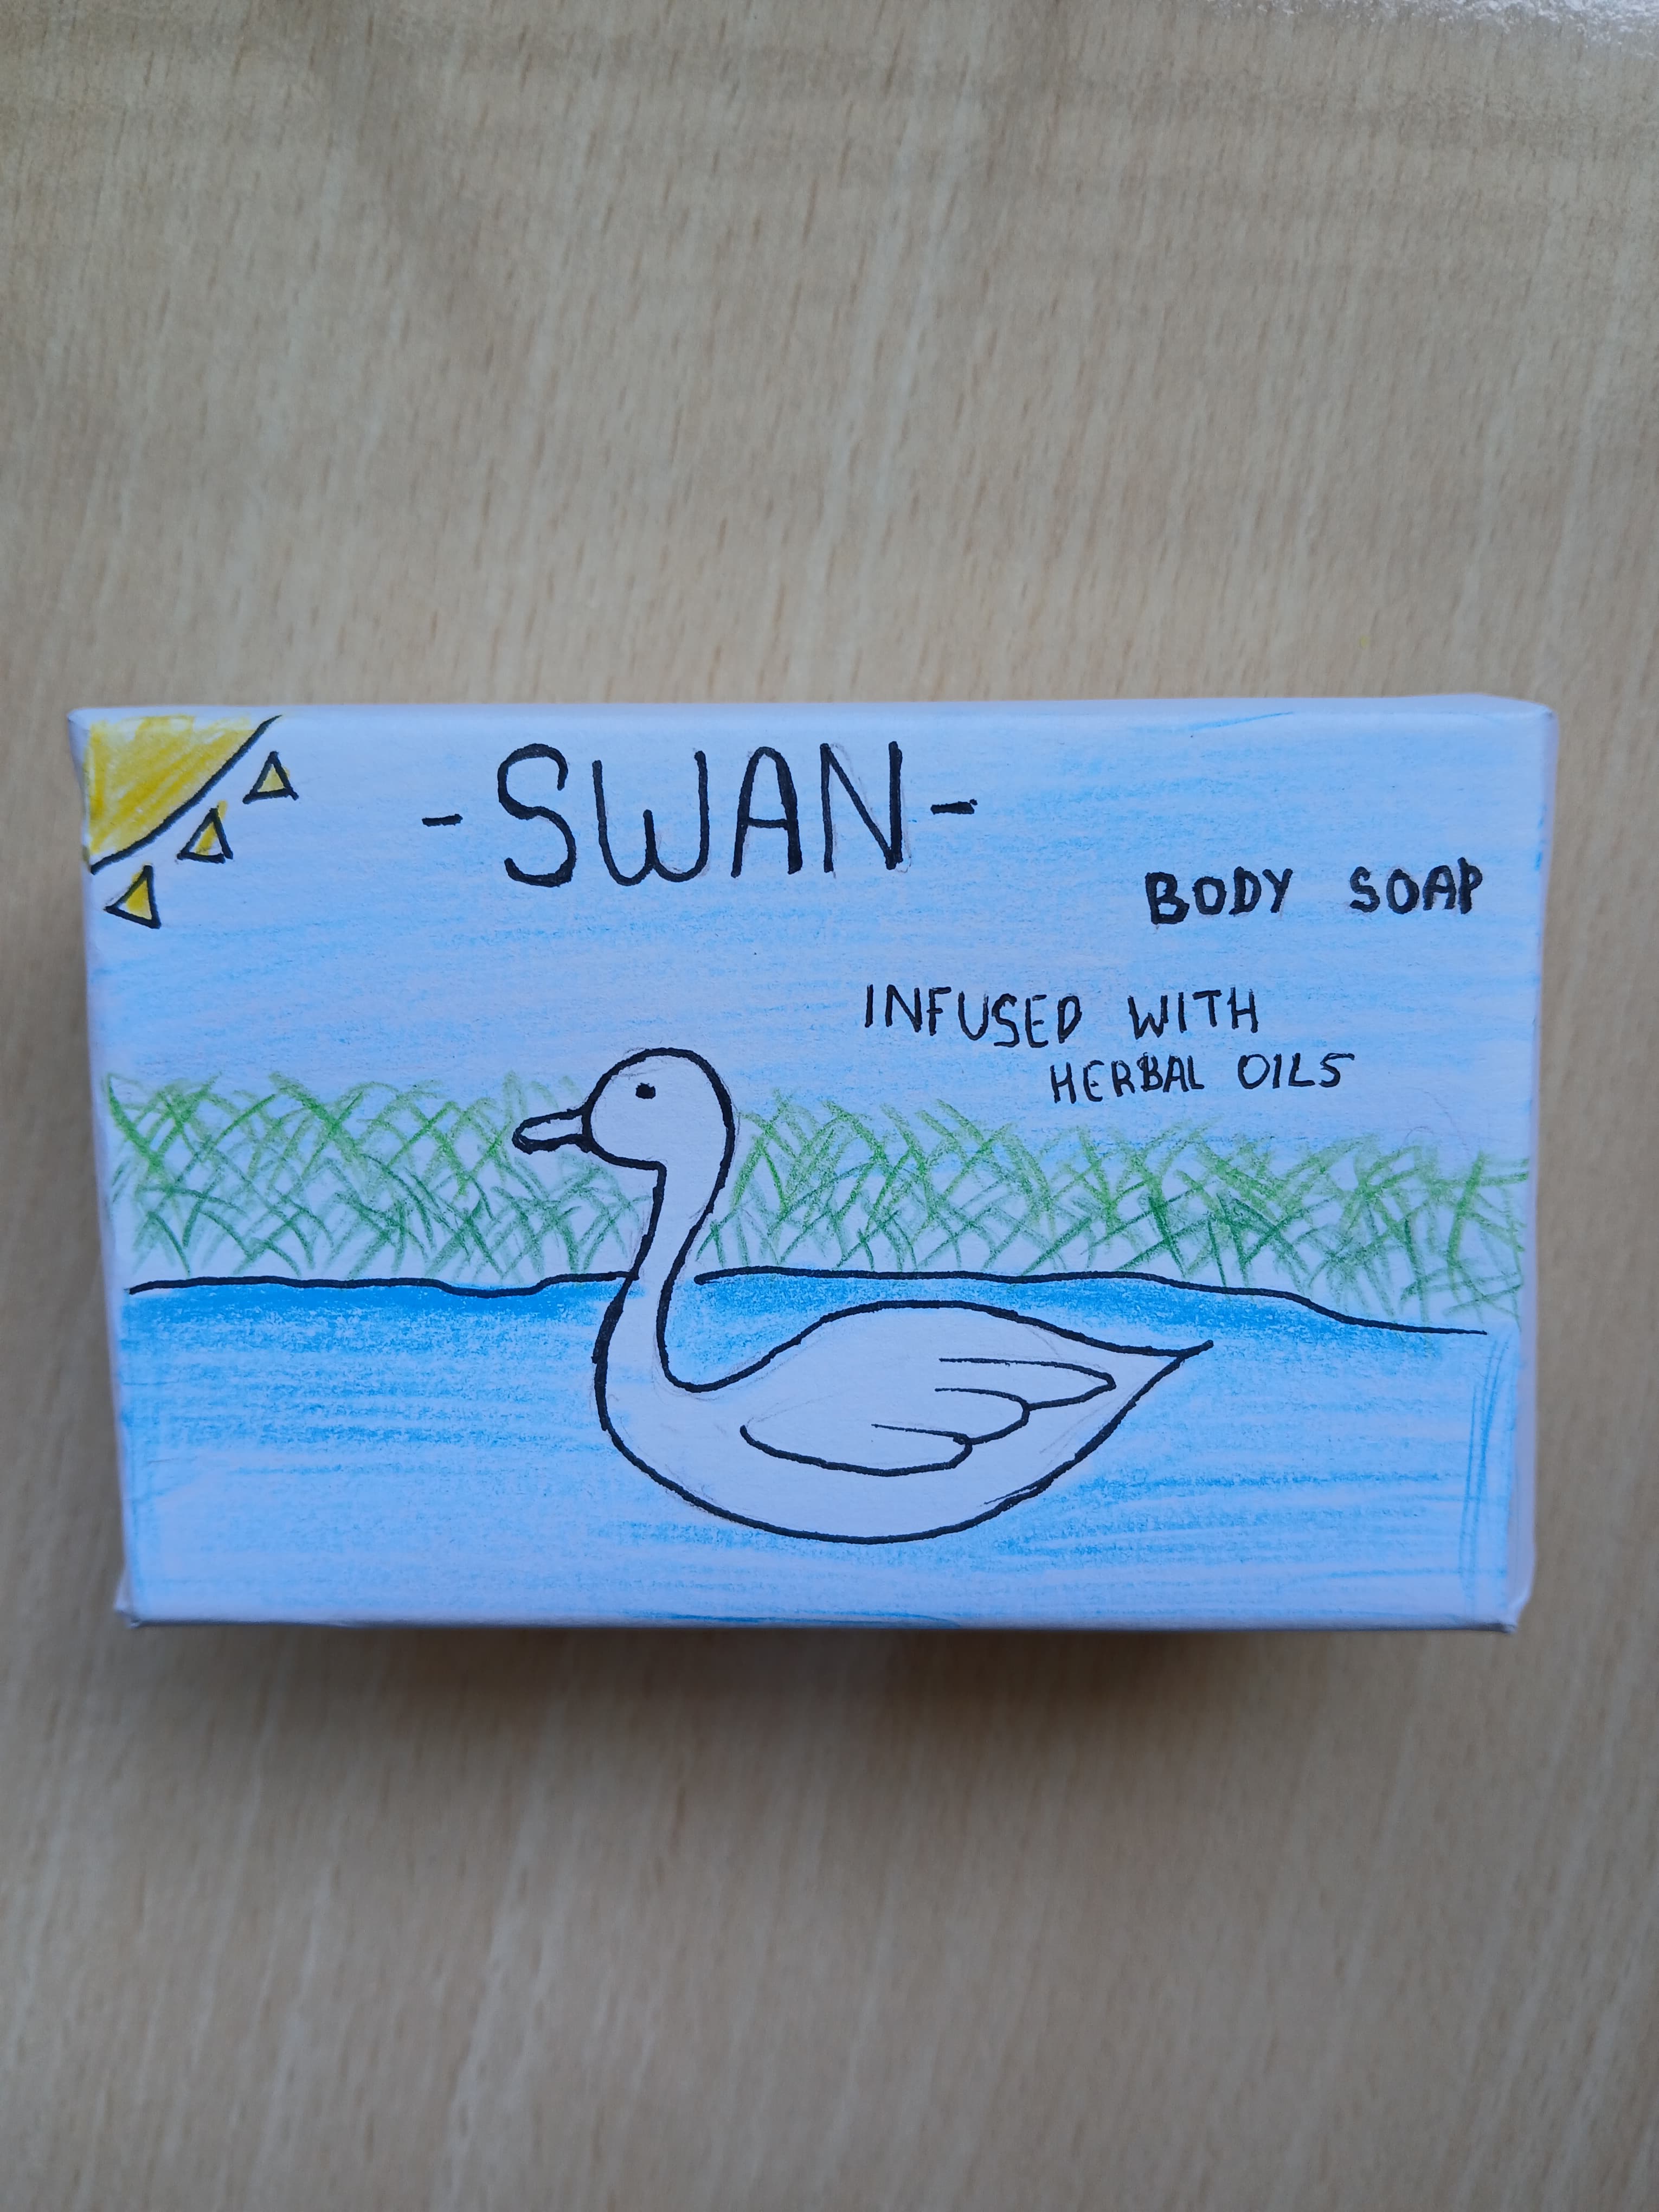 -SWAN-
BODY SOAP
INFUSED WITH
HERBAL OILS